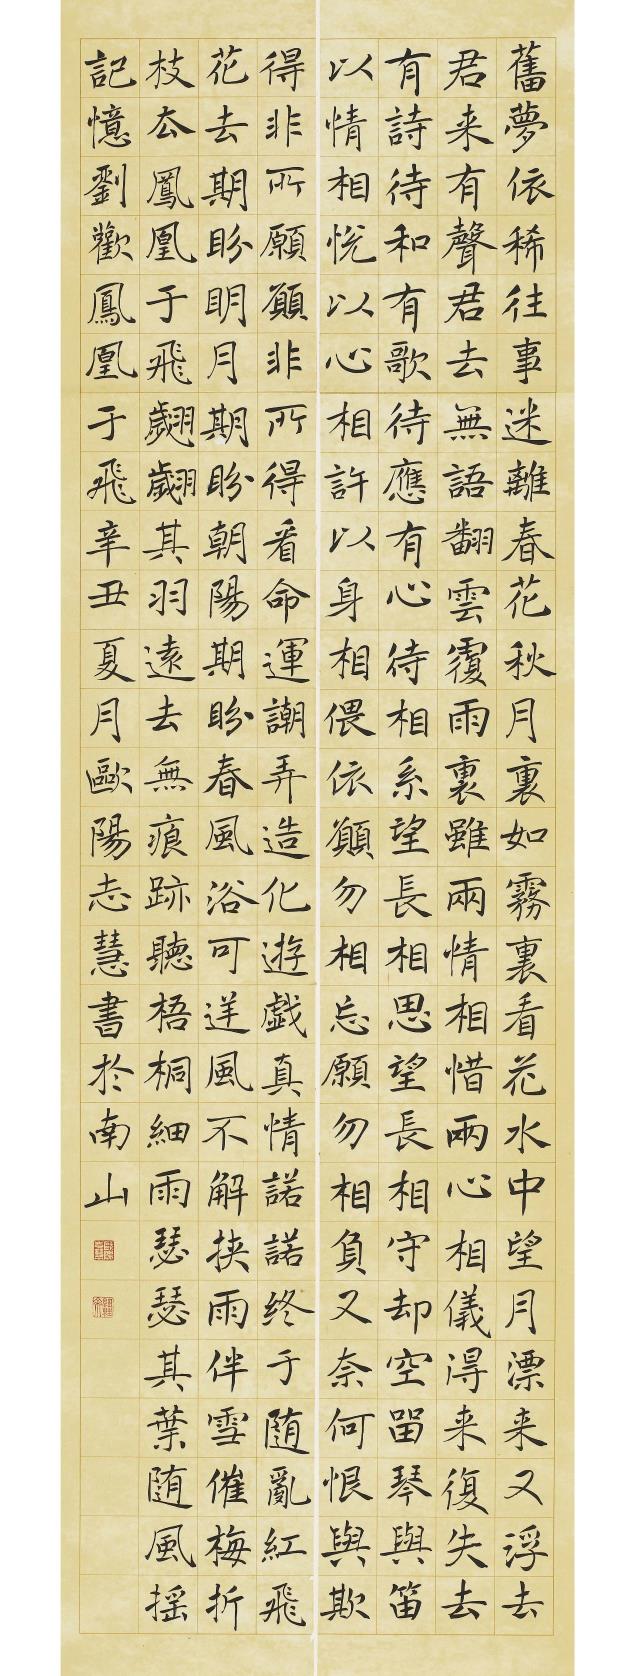 舊夢依稀往事迷離春花秋月裏如霧裏看花水中望月漂来又浮去
君来有聲君去無語翻雲覆雨裏雖兩情相惜兩心相儀得来復失去
有詩待和有歌待應有心待相系望長相思望長相守却空留琴與笛
以情相悦以心相許以身相偎依願勿相忘願勿相負又奈何恨與欺
得非所願願非所得看命運謿弄造化遊戯真情諾諾终于随亂紅飛
花去期盼眀月期盼朝陽期盼春風浴可逆風不解挟雨伴雪催梅折
枝厺鳳凰于飛翽翽其羽逺去無痕跡聽梧桐細雨瑟瑟其葉随風摇
記憶劉歡鳳凰于飛辛丑夏月歐陽志慧書於南山